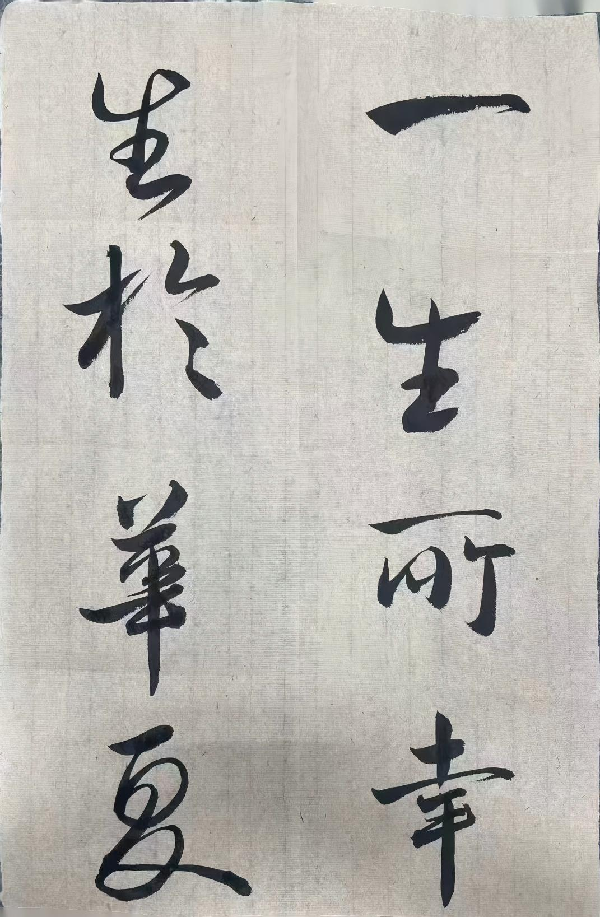 一生所幸
生於華夏